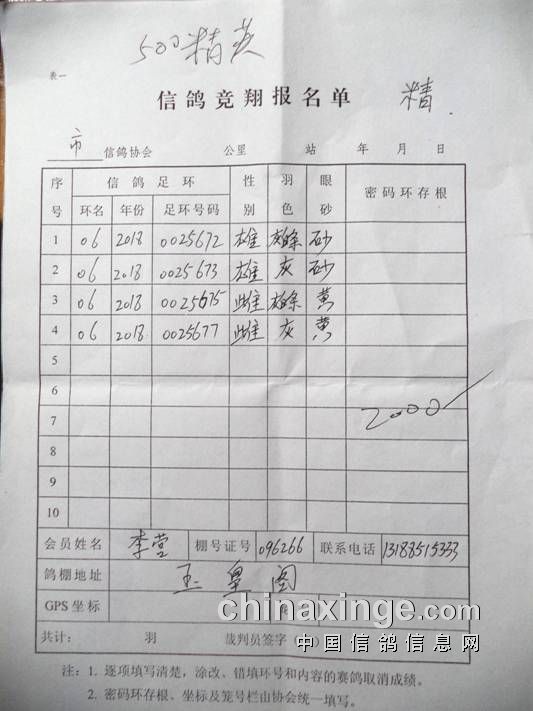 500精英
表一
信鸽竞翔报名单 精
市 信鸽协会 公里 站 年 月 日
序号 信鸽足环 性别 羽色 眼砂 密码环存根
环名 年份 足环号码
1 06 2018 0025672 雄 灰 砂
2 06 2018 0025673 雄 灰 砂
3 06 2018 0025675 雌 黄
4 06 2018 0025677 雌 灰 黄
5
6
7 2000
8
9
10
会员姓名 李营 棚号证号 096266 联系电话 13188515333
鸽棚地址 玉皇阁
GPS坐标
chinaxinge.com
共计: 羽 裁判员签字(
中国信鸽信息网
注:1. 逐项填写清楚,涂改、错填环号和内容的赛鸽取消成绩。
2. 密码环存根、坐标及笼号栏由协会统一填写。